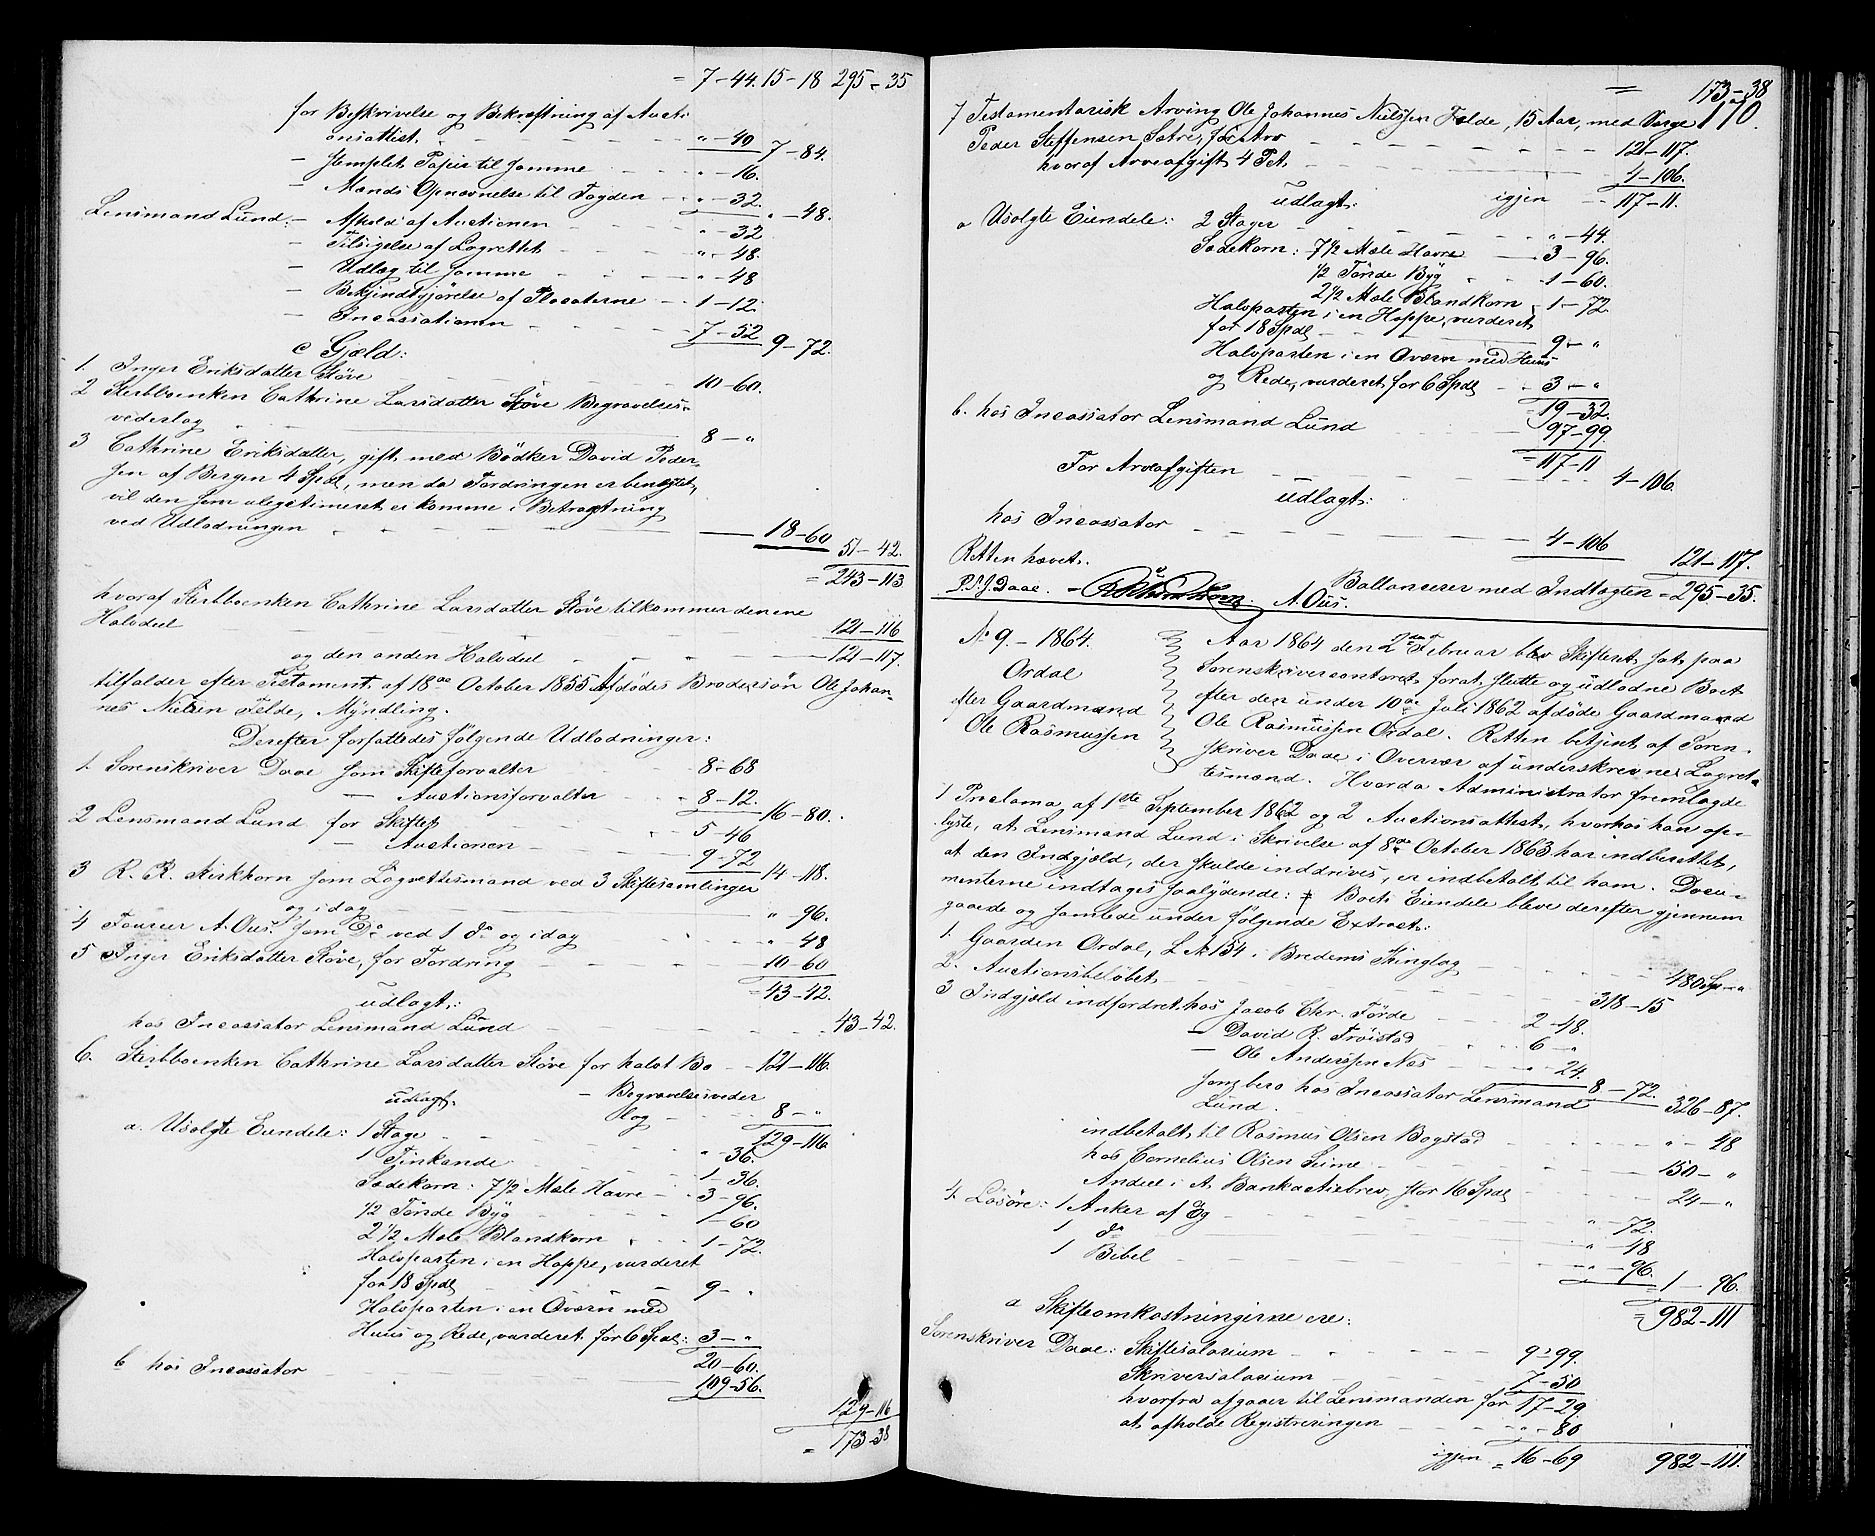 = 7-44. 15-18 295-35
for Beskrivelse og Bekræftning af Aucti
onsattest. " - 40 7-84.
- stemplet Papir til samme " - 16.
- Mænds Opnævnelse til Fogden " - 32. " - 48.
Lensmand Lund: - Afhold af Auctionen " - 32
- Tilsigelse af Lagrettet " - 48.
- Udlæg til samme " - 48
- Bekjendtgjörelse af Placaterne 1-12.
- Incassationen 7-52 9-72.
c Gjæld:
1. Inger Eriksdatter Støve 10-60.
2 Sterbboenken Cathrine Larsdatter Støve Begravelses-
vederlag 8 - "
3 Cathrine Eriksdatter, gift med Bødker David Peder-
sen af Bergen 4 Spd, men da Fordringen er benegtet,
vil den som ulegitimeret ei komme i Betragtning
ved Udlodningen 18-60 51-42.
= 243-113
hvoraf Sterbboenken Cathrine Larsdatter Støve tilkommer den ene
Halvdeel 121-116
og den anden Halvdeel 121-117.
tilfalder efter Testament af 18de October 1855 Afdødes Brodersön Ole Johan-
nes Nielsen Felde, Myndling.
Derefter forfattedes følgende Udlodninger:
1. Sorenskriver Daae som Skifteforvalter 8-68
- Auctionsforvalter 8-12. 16-80.
2 Lensmand Lund for Skiftet 5-46
- Auctionen 9-72 14-118.
3 R. R. Kirkhorn som Lagrettesmand ved 3 Skiftesamlinger
og idag " 96.
4 Fourer A. Ous. som Do ved 1 do og idag " - 48
5 Inger Eriksdatter Støve, for Fordring 10-60
= 43-42.
udlagt:
hos Incassator Lensmand Lund 43-42.
6. Sterbboenken Cathrine Larsdatter Støve for halvt Bo 121-116.
udlagt. - Begravelsesveder
lag 8 - "
a. Usolgte Eiendele: 1 Stage 129-116
" - 36.
1 Tinkande 1-36.
Sædekorn: 7½ Mæle Havre 3-96.
½ Tønde Byg 1-60
2½ Mæle Blandkorn 1-72.
Halvparten i en Hoppe, vurderet
for 18 Spd 9 - "
Halvparten i en Qværn med
Huus og Rede, vurderet for 6 Spd: 3 - "
20-60.
b hos Incassator 109-56.
129-116
= 173-38
= 173-38
170.
7 Testamentarisk Arving Ole Johannes Nielssen Felde, 15 Aar, med Værge
Peder Steffensen Sætre, for Arv 121-117.
hvoraf Arveafgift 4 Pct 4-106.
udlagt: igjen 117-11.
a Usolgte Eiendele: 2 Stager " - 44.
Sædekorn: 7½ Mæle Havre 3-96.
½ Tönde Byg 1-60.
2½ Mæle Blandkorn 1-72.
Halvparten i en Hoppe, vurderet
for 18 Spd 9 - "
Halvparten i en Qværn med Huus
og Rede, vurderet for 6 Spd 3 - "
19-32.
b. hos Incassator Lensmand Lund 97-99.
= 117-11
For Arveafgiften 4-106.
udlagt:
hos Incassator 4-106
Retten hævet. 121-117.
Ballancerer med Indtægten = 295-35.
P. S. J. Daae. A. Ous.
No 9. - 1864.
Ordal
efter Gaardmand
Ole Rasmussen
Aar 1864 den 2den Februar blev Skifteret sat paa
Sorenskrivercontoret forat slutte og udlodne Boet
efter den under 10de Juli 1862 afdøde Gaardmand
Ole Rasmussen Ordal. Retten betjent af Soren-
skriver Daae i Overvær af underskrevne Lagret-
tesmænd. Hvorda Administrator fremlagde
1 Proclama af 1ste September 1862 og 2 Auctionsattest, hvorhos han op-
lyste, at Lensmand Lund i Skrivelse af 8de October 1863 har indberettet,
at den Indgjæld, der skulde inddrives, er indbetalt til ham. Docu-
menterne indtages saalydende: ‡ Boets Eiendele bleve derefter gjennem
gaaede og samlede under følgende Extract:
1. Gaarden Ordal, L. No 154 i Bredems Thinglag 480 Sp - "
2. Auctionsbeløbet 318-15
3 Indgjæld indfordret hos Jacob Chr. Förde 2-48.
- David R. Fröistad 6 - "
- Ole Anderssen Næs " - 24.
8-72.
som bero hos Incassator Lensmand
Lund. 326-87.
indbetalt til Rasmus Olsen Bogstad " - 48
hos Cornelius Olsen Seime 150 - "
Andeel i A. Bankactiebrev, stor 16 Spd 24 - "
4. Løsøre: 1 Anker af Eg " - 72.
1 do " - 48
1 Bibel " - 96.
= 1-96.
= 982-111
a Skifteomkostningerne ere:
Sorenskriver Daae: Skiftesalarium 9-99.
Skriversalarium 7-50
hvorfra afgaaer til Lensmanden for 17-29
at afholde Registreringen " - 80
igjen = 16-69 982-111.